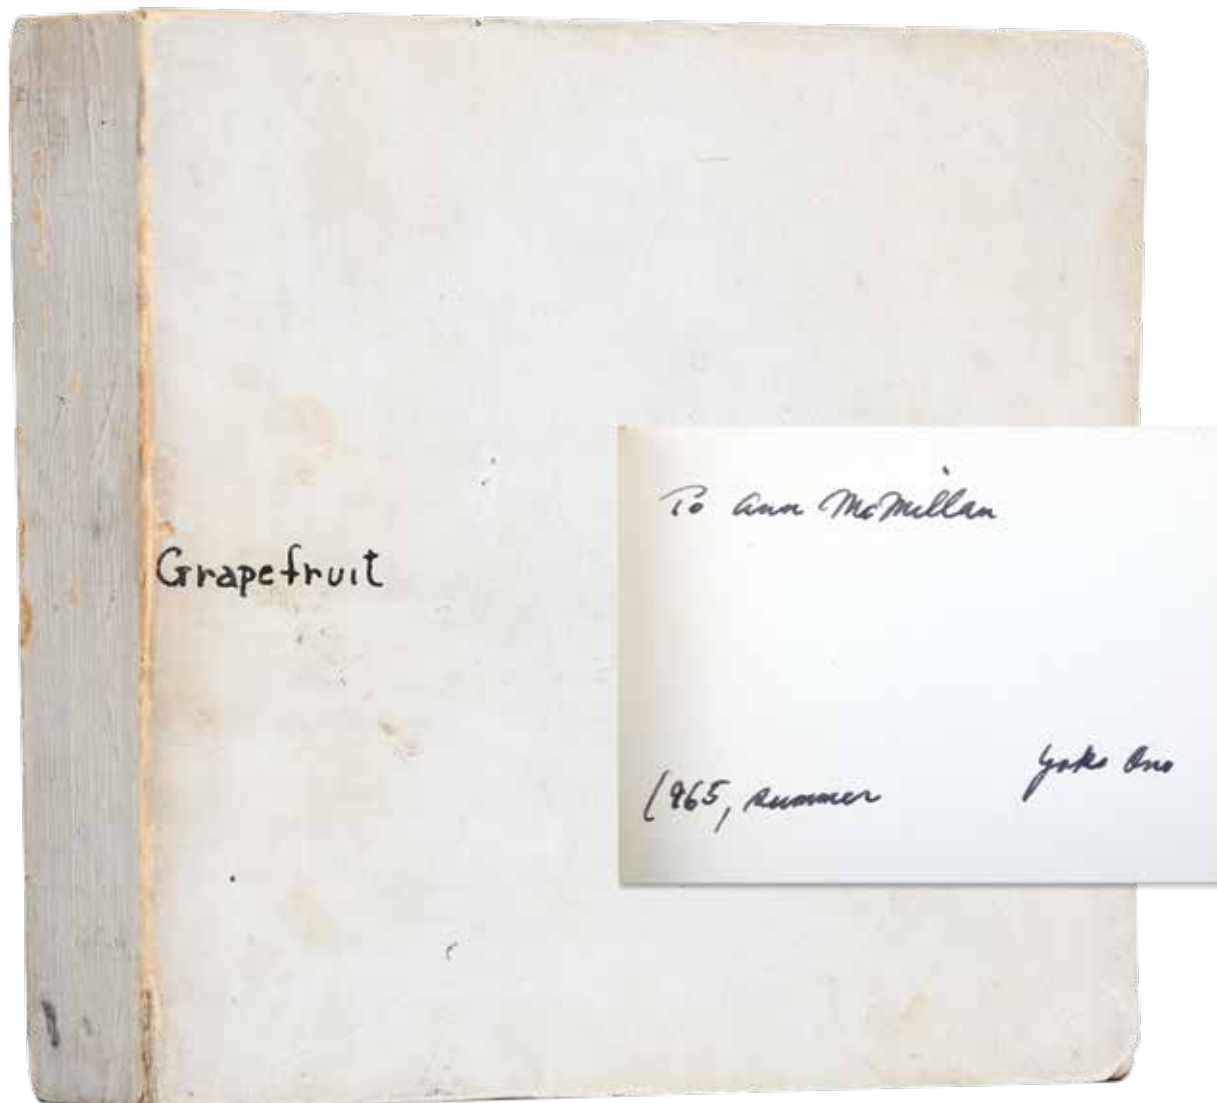 Grapefruit
To Ann McMillan
1965, summer
Yoko Ono